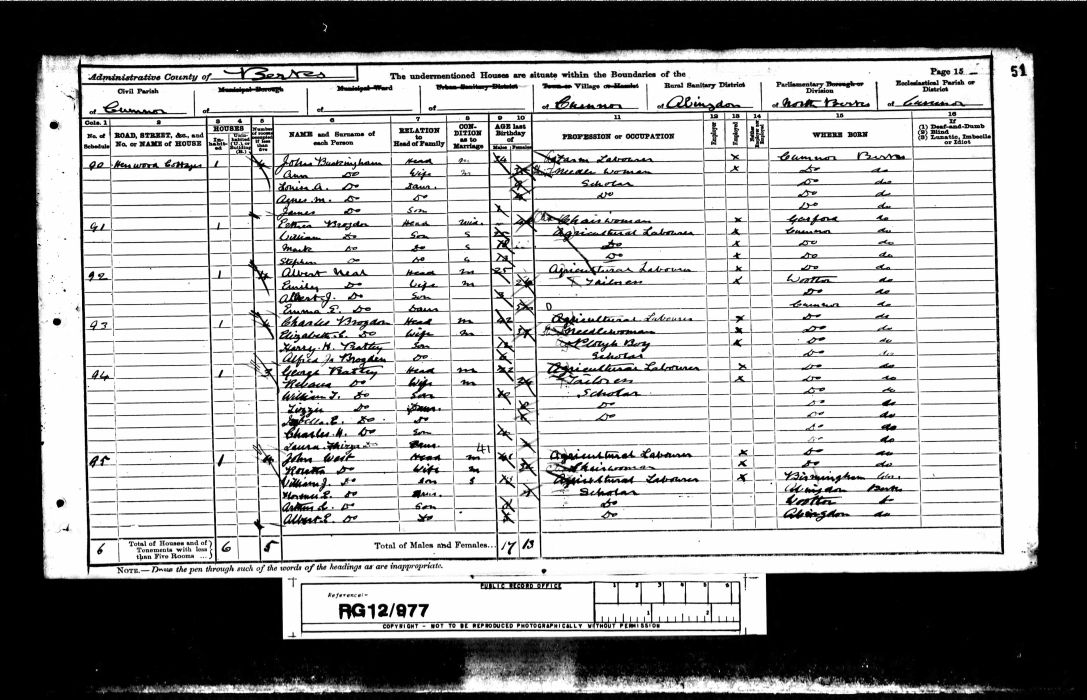 51
Administrative County of Berks
The undermentioned Houses are situate within the Boundaries of the
Page 15
Civil Parish of Cumnor
Municipal Borough of
Municipal Ward of
Urban Sanitary District of
Town or Village or Hamlet of Cumnor
Rural Sanitary District of Abingdon
Parliamentary Borough or Division of North Berks
Ecclesiastical Parish or District of Cumnor
Cols. 1 2 3 4 5 6 7 8 9 10 11 12 13 14 15 16
No. of Schedule
ROAD, STREET, &c., and No. or NAME of HOUSE
HOUSES
Inhabited
Uninhabited (U.) or Building (B.)
Number of rooms occupied if less than five
NAME and Surname of each Person
RELATION to Head of Family
CONDITION as to Marriage
AGE last Birthday of
Males Females
PROFESSION or OCCUPATION
Employer
Employed
Neither Employer nor Employed
WHERE BORN
If (1) Deaf-and-Dumb (2) Blind (3) Lunatic, Imbecile or Idiot
90 Henwood Cottages 1 Buckingham Head m Farm Labourer x Cumnor Berks
Ann Do Wife m Needle woman x Do do
Louisa A. Do Daur. Scholar Do do
Agnes M. Do Do Do Do do
James Do Son Do do
91 1 Brogdon Head Wid. Chairwoman x Garford do
William Do Son S Agricultural Labourer x Cumnor do
Mark Do Do S Do x Do do
Stephen Do Do S Do x Do do
92 1 Albert Neal Head m 25 Agricultural Labourer x Do do
Emily Do Wife m 24 Tailoress x Wootton do
Albert J. Do Son Do do
Emma E. Do Daur Cumnor do
93 1 Charles Brogdon Head m 42 Agricultural Labourer x Do do
Elizabeth Do Wife m Needlewoman x Do do
Harry H. Son Plough Boy x Do do
Alfred J. Brogdon Do Scholar Do do
94 1 George Head m Agricultural Labourer x Do do
Do Wife m Tailoress x Do do
William T. Do Son Scholar Do do
Lizzie Do Daur. Do Do do
E. Do Do Do Do do
Charles H. Do Son Do do
Laura Do Daur. Do do
95 1 John West Head m 41 Agricultural Labourer x Do do
Do Wife m Chairwoman x Do do
William J. Do Son S Agricultural Labourer x Birmingham
Florence E. Do Daur. Scholar Abingdon Berks
Arthur Do Son Do Wootton
Albert E. Do Do Do Abingdon do
6 Total of Houses and of Tenements with less than Five Rooms 6 5
Total of Males and Females... 17 13
NOTE.—Draw the pen through such of the words of the headings as are inappropriate.
PUBLIC RECORD OFFICE
Reference:-
RG12/977
1 2 3 4 5 6
1 2
COPYRIGHT - NOT TO BE REPRODUCED PHOTOGRAPHICALLY WITHOUT PERMISSION